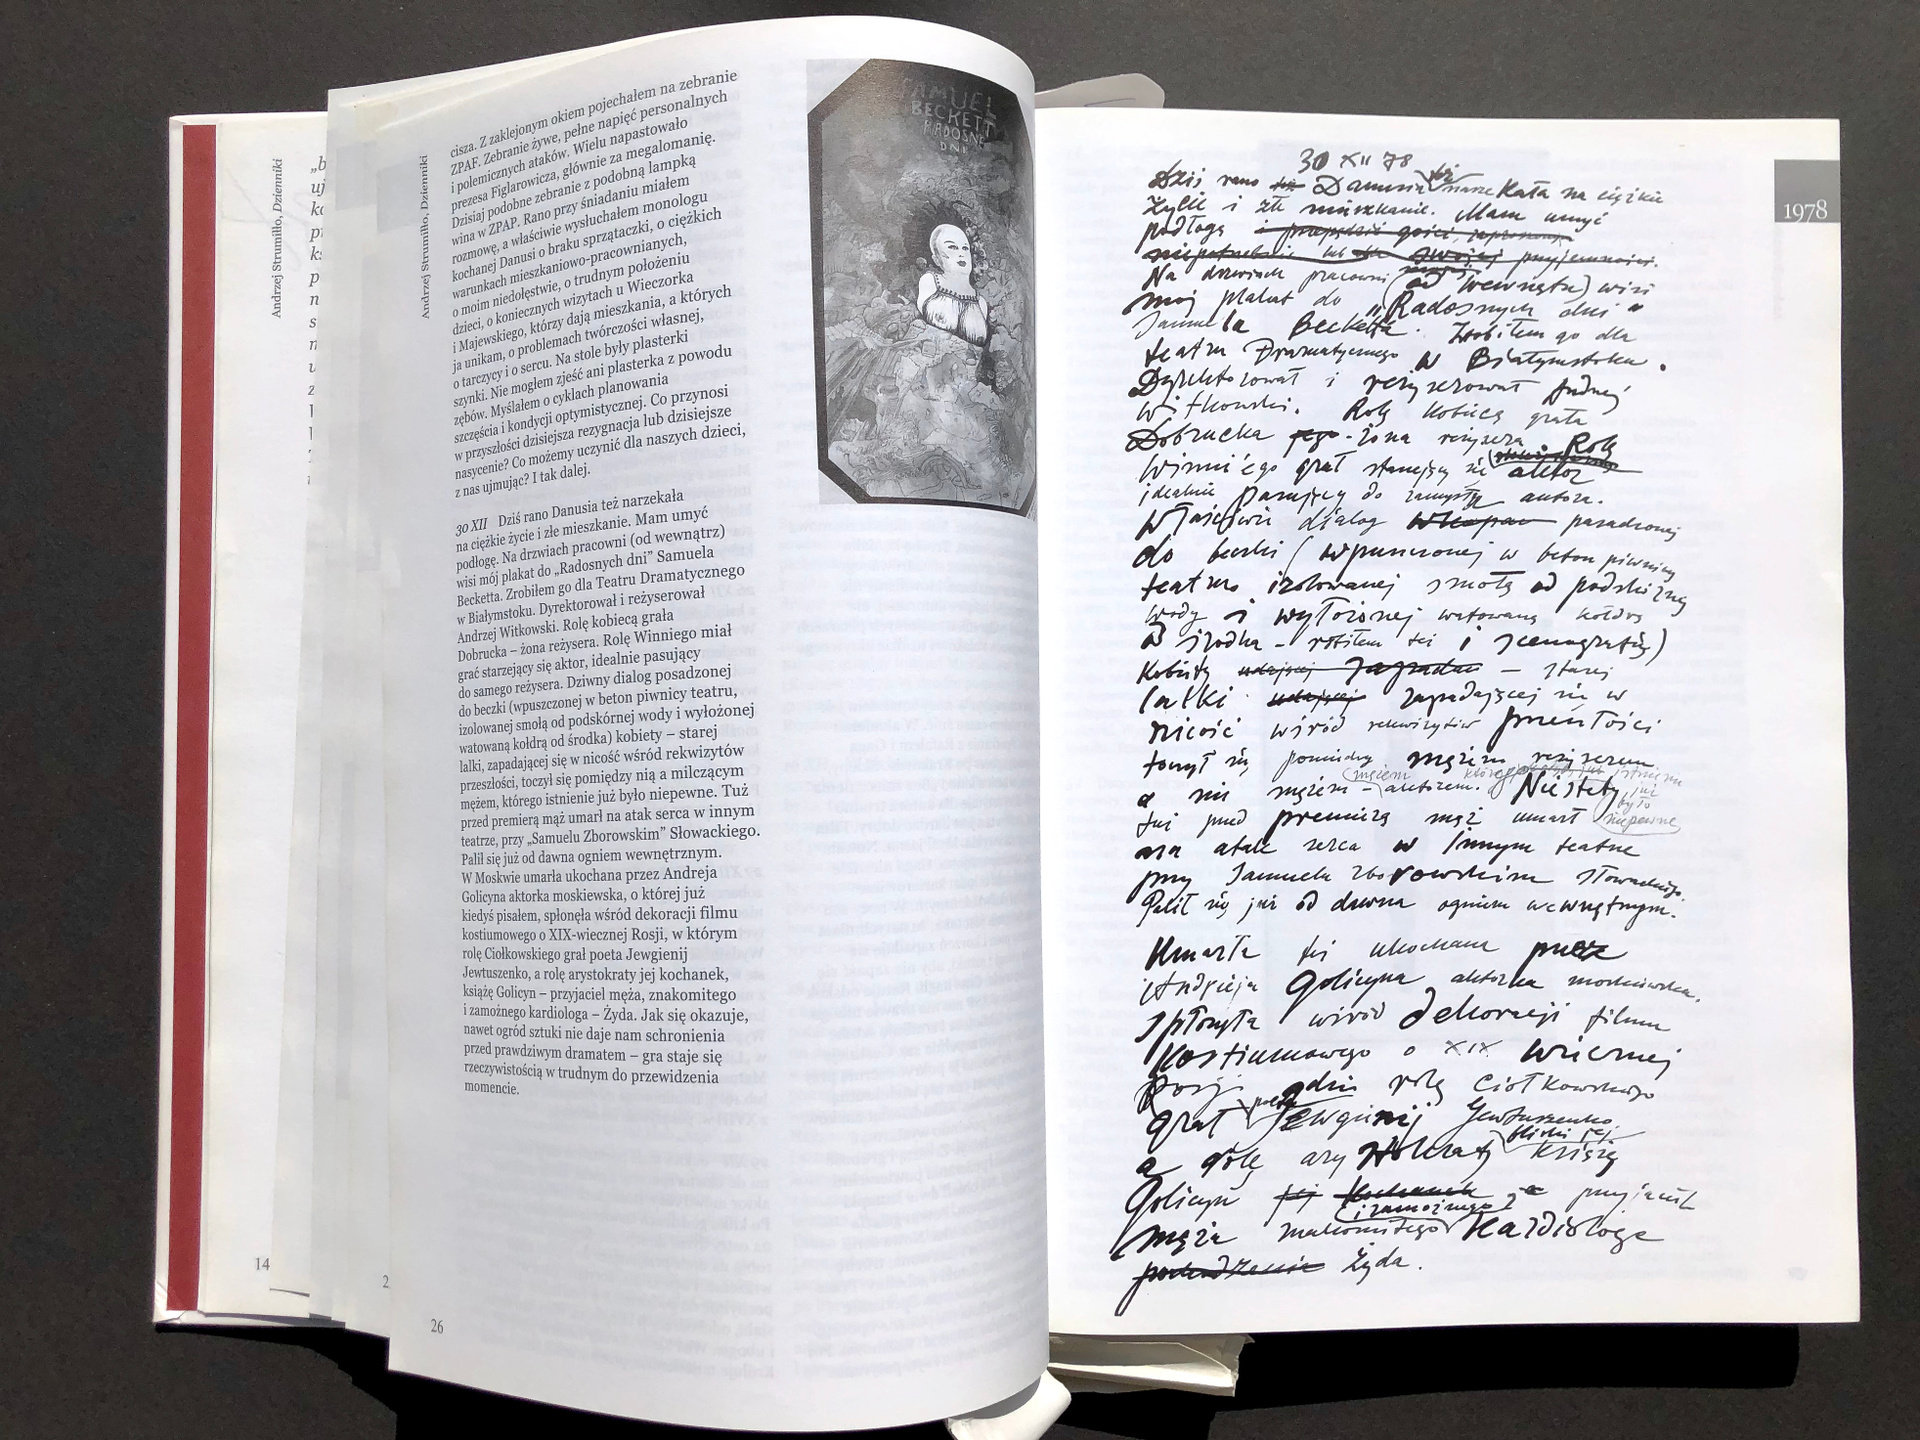 Andrzej Strumiłło, Dzienniki
14
2
Andrzej Strumiłło, Dzienniki
cisza. Z zaklejonym okiem pojechałem na zebranie
ZPAF. Zebranie żywe, pełne napięć personalnych
i polemicznych ataków. Wielu napastowało
prezesa Figlarowicza, głównie za megalomanię.
Dzisiaj podobne zebranie z podobną lampką
wina w ZPAP. Rano przy śniadaniu miałem
rozmowę, a właściwie wysłuchałem monologu
kochanej Danusi o braku sprzątaczki, o ciężkich
warunkach mieszkaniowo-pracownianych,
o moim niedołęstwie, o trudnym położeniu
dzieci, o koniecznych wizytach u Wieczorka
i Majewskiego, którzy dają mieszkania, a których
ja unikam, o problemach twórczości własnej,
o tarczycy i o sercu. Na stole były plasterki
szynki. Nie mogłem zjeść ani plasterka z powodu
zębów. Myślałem o cyklach planowania
szczęścia i kondycji optymistycznej. Co przynosi
w przyszłości dzisiejsza rezygnacja lub dzisiejsze
nasycenie? Co możemy uczynić dla naszych dzieci,
z nas ujmując? I tak dalej.
30 XII Dziś rano Danusia też narzekała
na ciężkie życie i złe mieszkanie. Mam umyć
podłogę. Na drzwiach pracowni (od wewnątrz)
wisi mój plakat do „Radosnych dni” Samuela
Becketta. Zrobiłem go dla Teatru Dramatycznego
w Białymstoku. Dyrektorował i reżyserował
Andrzej Witkowski. Rolę kobiecą grała
Dobrucka – żona reżysera. Rolę Winniego miał
grać starzejący się aktor, idealnie pasujący
do samego reżysera. Dziwny dialog posadzonej
do beczki (wpuszczonej w beton piwnicy teatru,
izolowanej smołą od podskórnej wody i wyłożonej
watowaną kołdrą od środka) kobiety – starej
lalki, zapadającej się w nicość wśród rekwizytów
przeszłości, toczył się pomiędzy nią a milczącym
mężem, którego istnienie już było niepewne. Tuż
przed premierą mąż umarł na atak serca w innym
teatrze, przy „Samuelu Zborowskim” Słowackiego.
Palił się już od dawna ogniem wewnętrznym.
W Moskwie umarła ukochana przez Andreja
Golicyna aktorka moskiewska, o której już
kiedyś pisałem, spłonęła wśród dekoracji filmu
kostiumowego o XIX-wiecznej Rosji, w którym
rolę Ciołkowskiego grał poeta Jewgienij
Jewtuszenko, a rolę arystokraty jej kochanek,
książę Golicyn – przyjaciel męża, znakomitego
i zamożnego kardiologa – Żyda. Jak się okazuje,
nawet ogród sztuki nie daje nam schronienia
przed prawdziwym dramatem – gra staje się
rzeczywistością w trudnym do przewidzenia
momencie.
26
SAMUEL
BECKETT
RADOSNE
DNI
1978
30 XII 78
Dziś rano Danusia też narzekała na ciężkie
życie i złe mieszkanie. Mam umyć
podłogę
Na drzwiach pracowni (od wewnątrz) wisi
mój plakat do „Radosnych dni"
Samuela Becketta. Zrobiłem go dla
teatru Dramatycznego w Białymstoku.
Dyrektorował i reżyserował Andrzej
Witkowski. Rolę kobiecą grała
Dobrucka jego - żona reżysera. Rolę
Winni'ego grał starzejący się aktor
idealnie pasujący do zamysłu autora.
Właściwie dialog posadzonej
do beczki (wpuszczonej w beton piwnicy
teatru izolowanej smołą od podskórnej
wody i wyłożonej watowaną kołdrą
od środka - robiłem też i scenografię)
kobiety – starej
lalki zapadającej się w
nicość wśród rekwizytów przeszłości
toczył się pomiędzy mężem reżyserem
a nie mężem - aktorem. Niestety
mężem którego istnienie już było niepewne
tuż przed premierą mąż umarł
na atak serca w innym teatrze
przy Samuelu Zborowskim Słowackiego.
Palił się już od dawna ogniem wewnętrznym.
Umarła też ukochana przez
Andrieja Golicyna aktorka moskiewska,
spłonęła wśród dekoracji filmu
kostiumowego o XIX wiecznej
Rosji gdzie rolę Ciołkowskiego
grał poeta Jewgienij Jewtuszenko
a rolę arystokraty bliski jej książę
Golicyn jej kochanek przyjaciel
męża znakomitego i zamożnego kardiologa
Żyda.